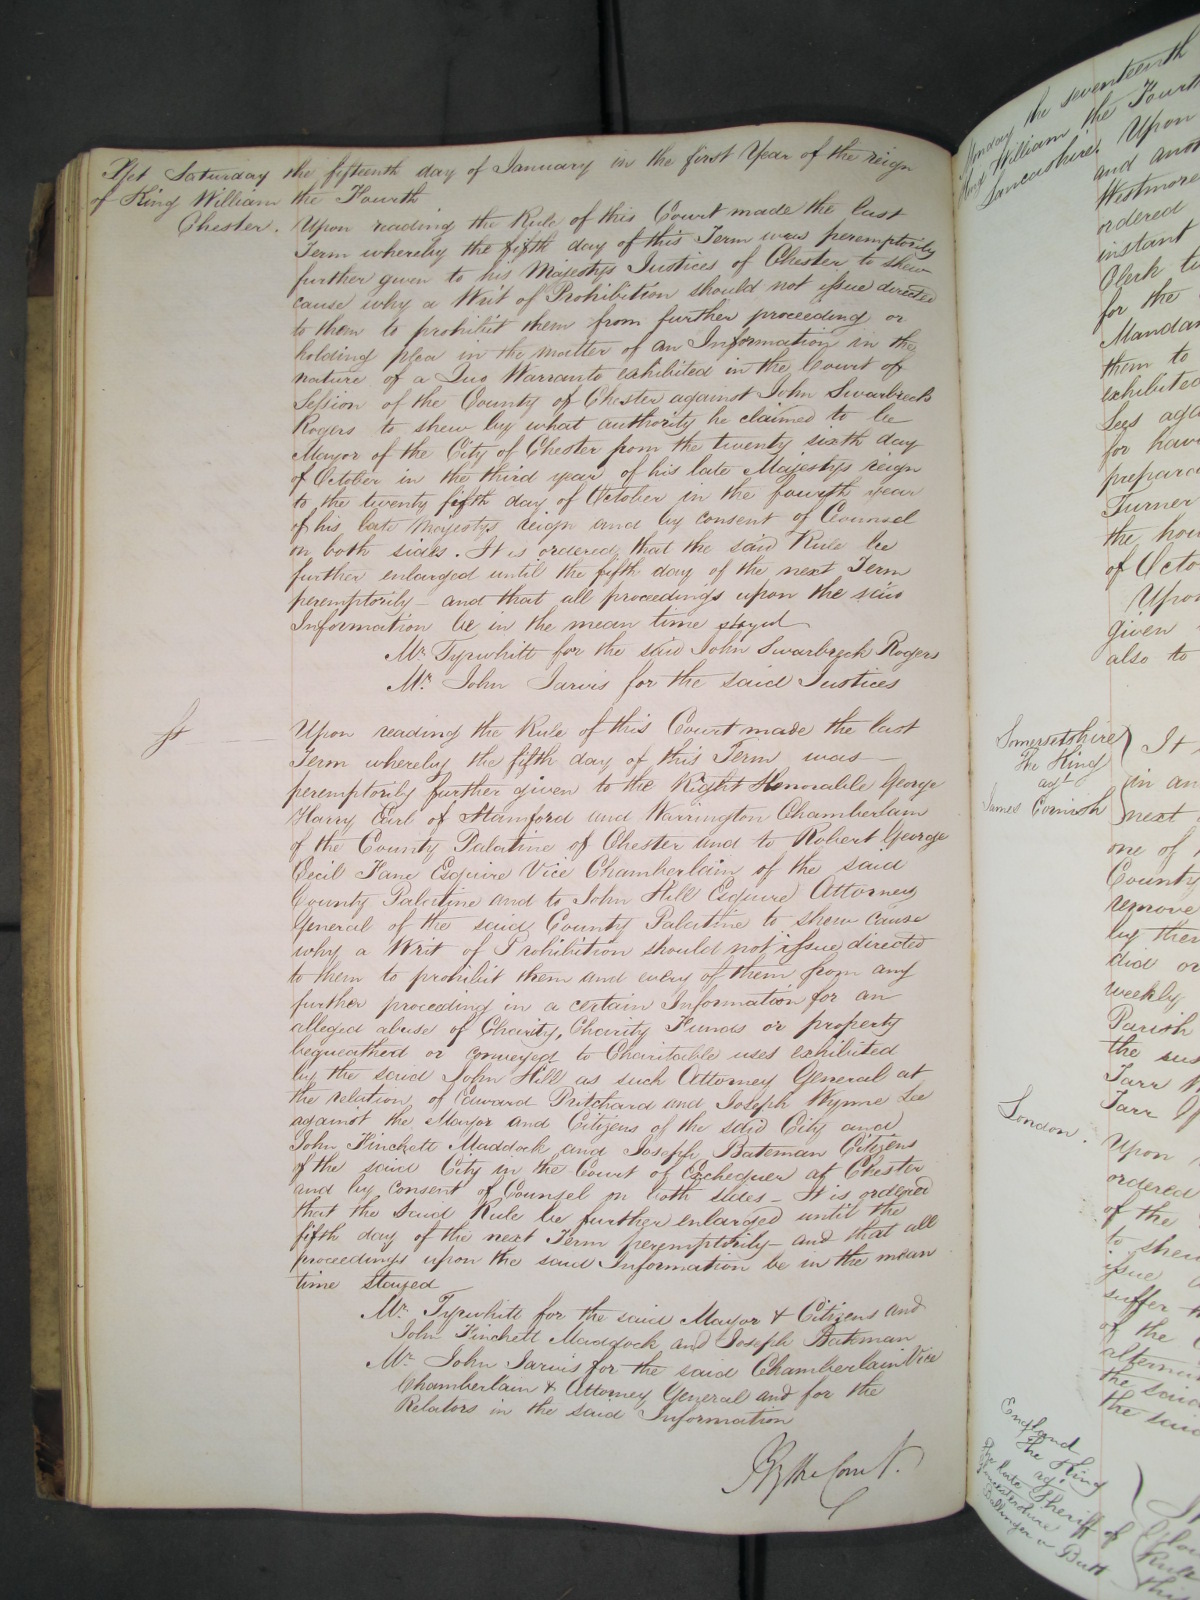 Yet Saturday the fifteenth day of January in the first Year of the reign
of King William the Fourth
Chester. Upon reading the Rule of this Court made the last
Term whereby the fifth day of this Term was peremptorily
further given to his Majestys Justices of Chester to shew
cause why a Writ of Prohibition should not issue directed
to them to prohibit them from further proceeding or
holding plea in the matter of an Information in the
nature of a Quo Warranto exhibited in the Court of
Session of the County of Chester against John Swarbreck
Rogers to shew by what authority he claimed to be
Mayor of the City of Chester from the twenty sixth day
of October in the third year of his late Majestys reign
to the twenty fifth day of October in the fourth year
of his late Majestys reign and by consent of Counsel
on both sides. It is ordered that the said Rule be
further enlarged until the fifth day of the next Term
peremptorily and that all proceedings upon the said
Information be in the mean time stayed
Mr. Tyrwhitt for the said John Swarbreck Rogers
Mr. John Jarvis for the said Justices
Upon reading the Rule of this Court made the last
Term whereby the fifth day of this Term was
peremptorily further given to the Right Honorable George
Harry Earl of Stamford and Warrington Chamberlain
of the County Palatine of Chester and to Robert George
Cecil Fane Esquire Vice Chamberlain of the said
County Palatine and to John Hill Esquire Attorney
General of the said County Palatine to shew cause
why a Writ of Prohibition should not issue directed
to them to prohibit them and every of them from any
further proceeding in a certain Information for an
alleged abuse of Charity, Charity Funds or property
bequeathed or conveyed to Charitable uses exhibited
by the said John Hill as such Attorney General at
the relation of Edward Pritchard and Joseph Wynne Lee
against the Mayor and Citizens of the said City and
John Finchett Maddock and Joseph Bateman Citizens
of the said City in the Court of Exchequer at Chester
and by consent of Counsel on both sides - It is ordered
that the said Rule be further enlarged until the
fifth day of the next Term peremptorily and that all
proceedings upon the said Information be in the mean
time stayed
Mr. Tyrwhitt for the said Mayor & Citizens and
John Finchett Maddock and Joseph Bateman
Mr. John Jarvis for the said Chamberlain Vice
Chamberlain & Attorney General and for the
Relators in the said Information
By the Court.
Monday the seventeenth
King William the Fourth
Lancashire. Upon
and anot
Westmore
ordered
instant
Clerk to
for the
Mandam
them to
exhibited
Lees aga
for havi
prepara
Turner
the hou
of Octo
Upon
given
also to
Somersetshire } It
The King
agt in an
James Cornish next
one of
County
remove
by them
did or
weekly
Parish
the sus
Tarr
Tarr
London. Upon
ordered
of the
to shew
issue
suffer
of the
alternu
the said
the said
England
The King
agt
The late Sheriff of
Gloucestershire
Rule
this